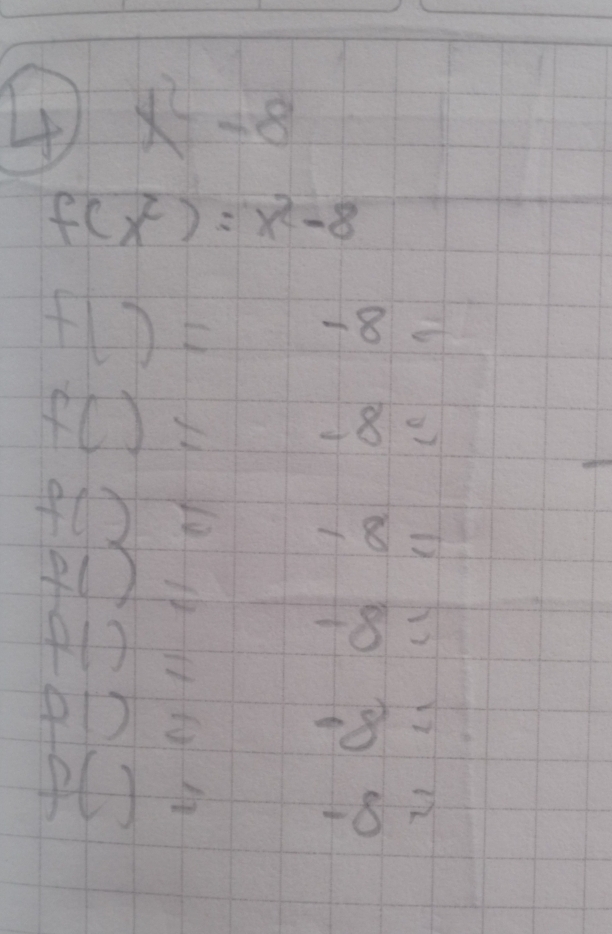 4 x² - 8
f(x²) = x² - 8
f( ) = - 8 =
f( ) = - 8 =
f( ) = - 8 =
f( ) =
f( ) = - 8 =
f( ) = - 8 =
f( ) = - 8 =